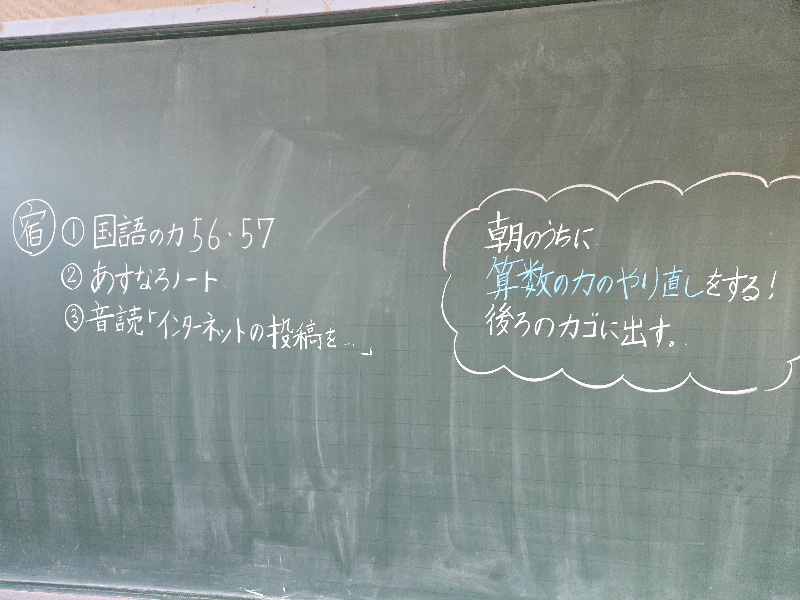 宿 ① 国語の力 56・57
② あすなろノート
③ 音読「インターネットの投稿を…」
朝のうちに
算数の力のやり直しをする!
後ろのカゴに出す。